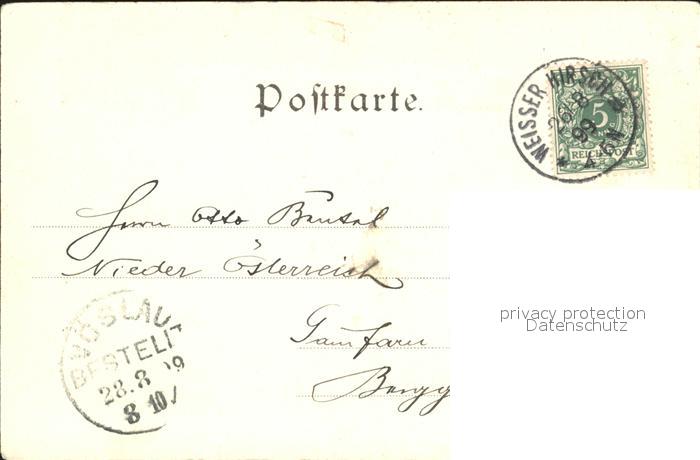 Postkarte.
WEISSER HIRSCH
26 8
99
5
REICHSPOST
Herrn Otto
Nieder Österreich
privacy protection
Datenschutz
VÖSLAU
BESTELLT
28.8
8 10